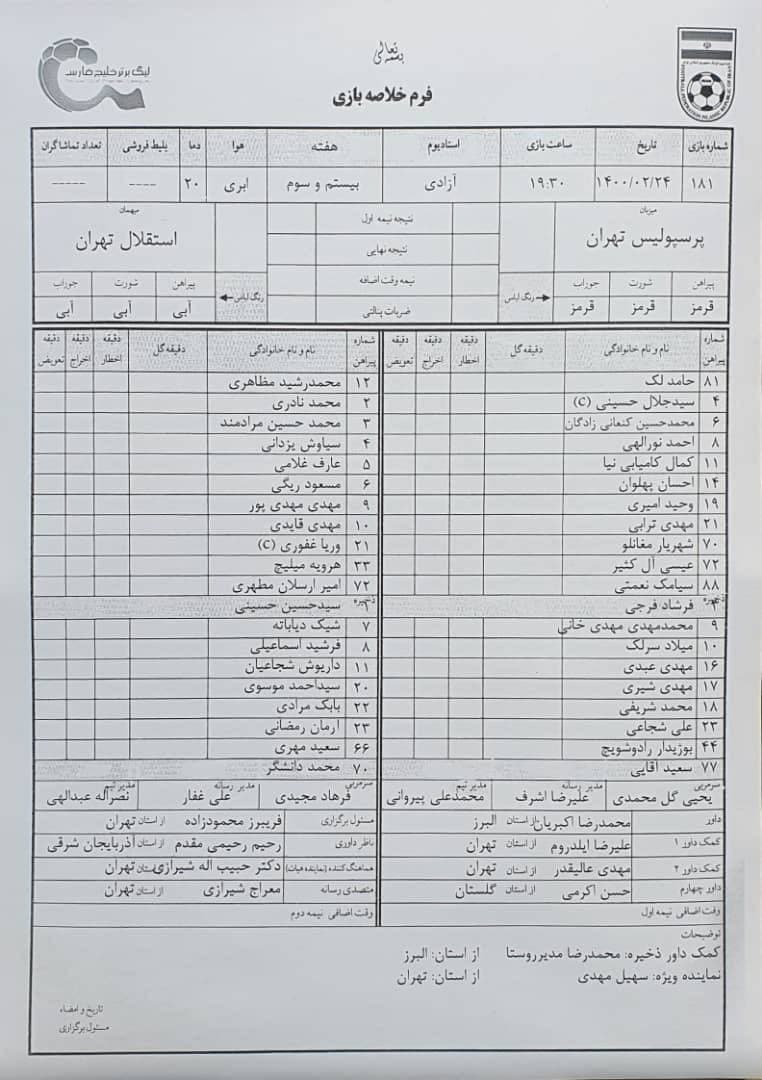 بسمه تعالی
لیگ برتر خلیج فارس
فرم خلاصه بازی
شماره بازی تاریخ ساعت بازی استادیوم هفته هوا دما بلیط فروشی تعداد تماشاگران
۱۸۱ ۱۴۰۰/۰۲/۲۴ ۱۹:۳۰ آزادی بیستم و سوم ابری ۲۰ ---- -----
میزبان
پرسپولیس تهران
پیراهن شورت جوراب
قرمز قرمز قرمز
رنگ لباس
نتیجه نیمه اول
نتیجه نهایی
نیمه وقت اضافه
ضربات پنالتی
میهمان
استقلال تهران
رنگ لباس
پیراهن شورت جوراب
آبی آبی آبی
شماره پیراهن نام و نام خانوادگی دقیقه گل دقیقه اخطار دقیقه اخراج دقیقه تعویض
۸۱ حامد لک
۴ سیدجلال حسینی (C)
۶ محمدحسین کنعانی زادگان
۸ احمد نورالهی
۱۱ کمال کامیابی نیا
۱۴ احسان پهلوان
۱۹ وحید امیری
۲۱ مهدی ترابی
۷۰ شهریار مغانلو
۷۲ عیسی آل کثیر
۸۸ سیامک نعمتی
ذخیره
۲ فرشاد فرجی
۹ محمدمهدی مهدی خانی
۱۰ میلاد سرلک
۱۶ مهدی عبدی
۱۷ مهدی شیری
۱۸ محمد شریفی
۲۳ علی شجاعی
۴۴ بوژیدار رادوشویچ
۷۷ سعید آقایی
سرمربی یحیی گل محمدی مدیر رسانه علیرضا اشرف مدیر تیم محمدعلی پیروانی
شماره پیراهن نام و نام خانوادگی دقیقه گل دقیقه اخطار دقیقه اخراج دقیقه تعویض
۱۲ محمدرشید مظاهری
۲ محمد نادری
۳ محمد حسین مرادمند
۴ سیاوش یزدانی
۵ عارف غلامی
۶ مسعود ریگی
۹ مهدی مهدی پور
۱۰ مهدی قایدی
۲۱ وریا غفوری (C)
۳۳ هرویه میلیچ
۷۲ امیر ارسلان مطهری
ذخیره
۱ سیدحسین حسینی
۷ شیک دیاباته
۸ فرشید اسماعیلی
۱۱ داریوش شجاعیان
۲۰ سیداحمد موسوی
۲۲ بابک مرادی
۲۳ آرمان رمضانی
۶۶ سعید مهری
۷۰ محمد دانشگر
سرمربی فرهاد مجیدی مدیر رسانه علی غفار مدیر تیم نصراله عبدالهی
داور محمدرضا اکبریان از استان: البرز
کمک داور ۱ علیرضا ایلدروم از استان: تهران
کمک داور ۲ مهدی عالیقدر از استان: تهران
داور چهارم حسن اکرمی از استان: گلستان
وقت اضافی نیمه اول
مسئول برگزاری فریبرز محمودزاده از استان: تهران
ناظر داوری رحیم رحیمی مقدم از استان: آذربایجان شرقی
هماهنگ کننده (نماینده هیات) دکتر حبیب اله شیرازی از استان: تهران
متصدی رسانه معراج شیرازی از استان: تهران
وقت اضافی نیمه دوم
توضیحات
کمک داور ذخیره: محمدرضا مدیرروستا از استان: البرز
نماینده ویژه: سهیل مهدی از استان: تهران
تاریخ و امضاء
مسئول برگزاری